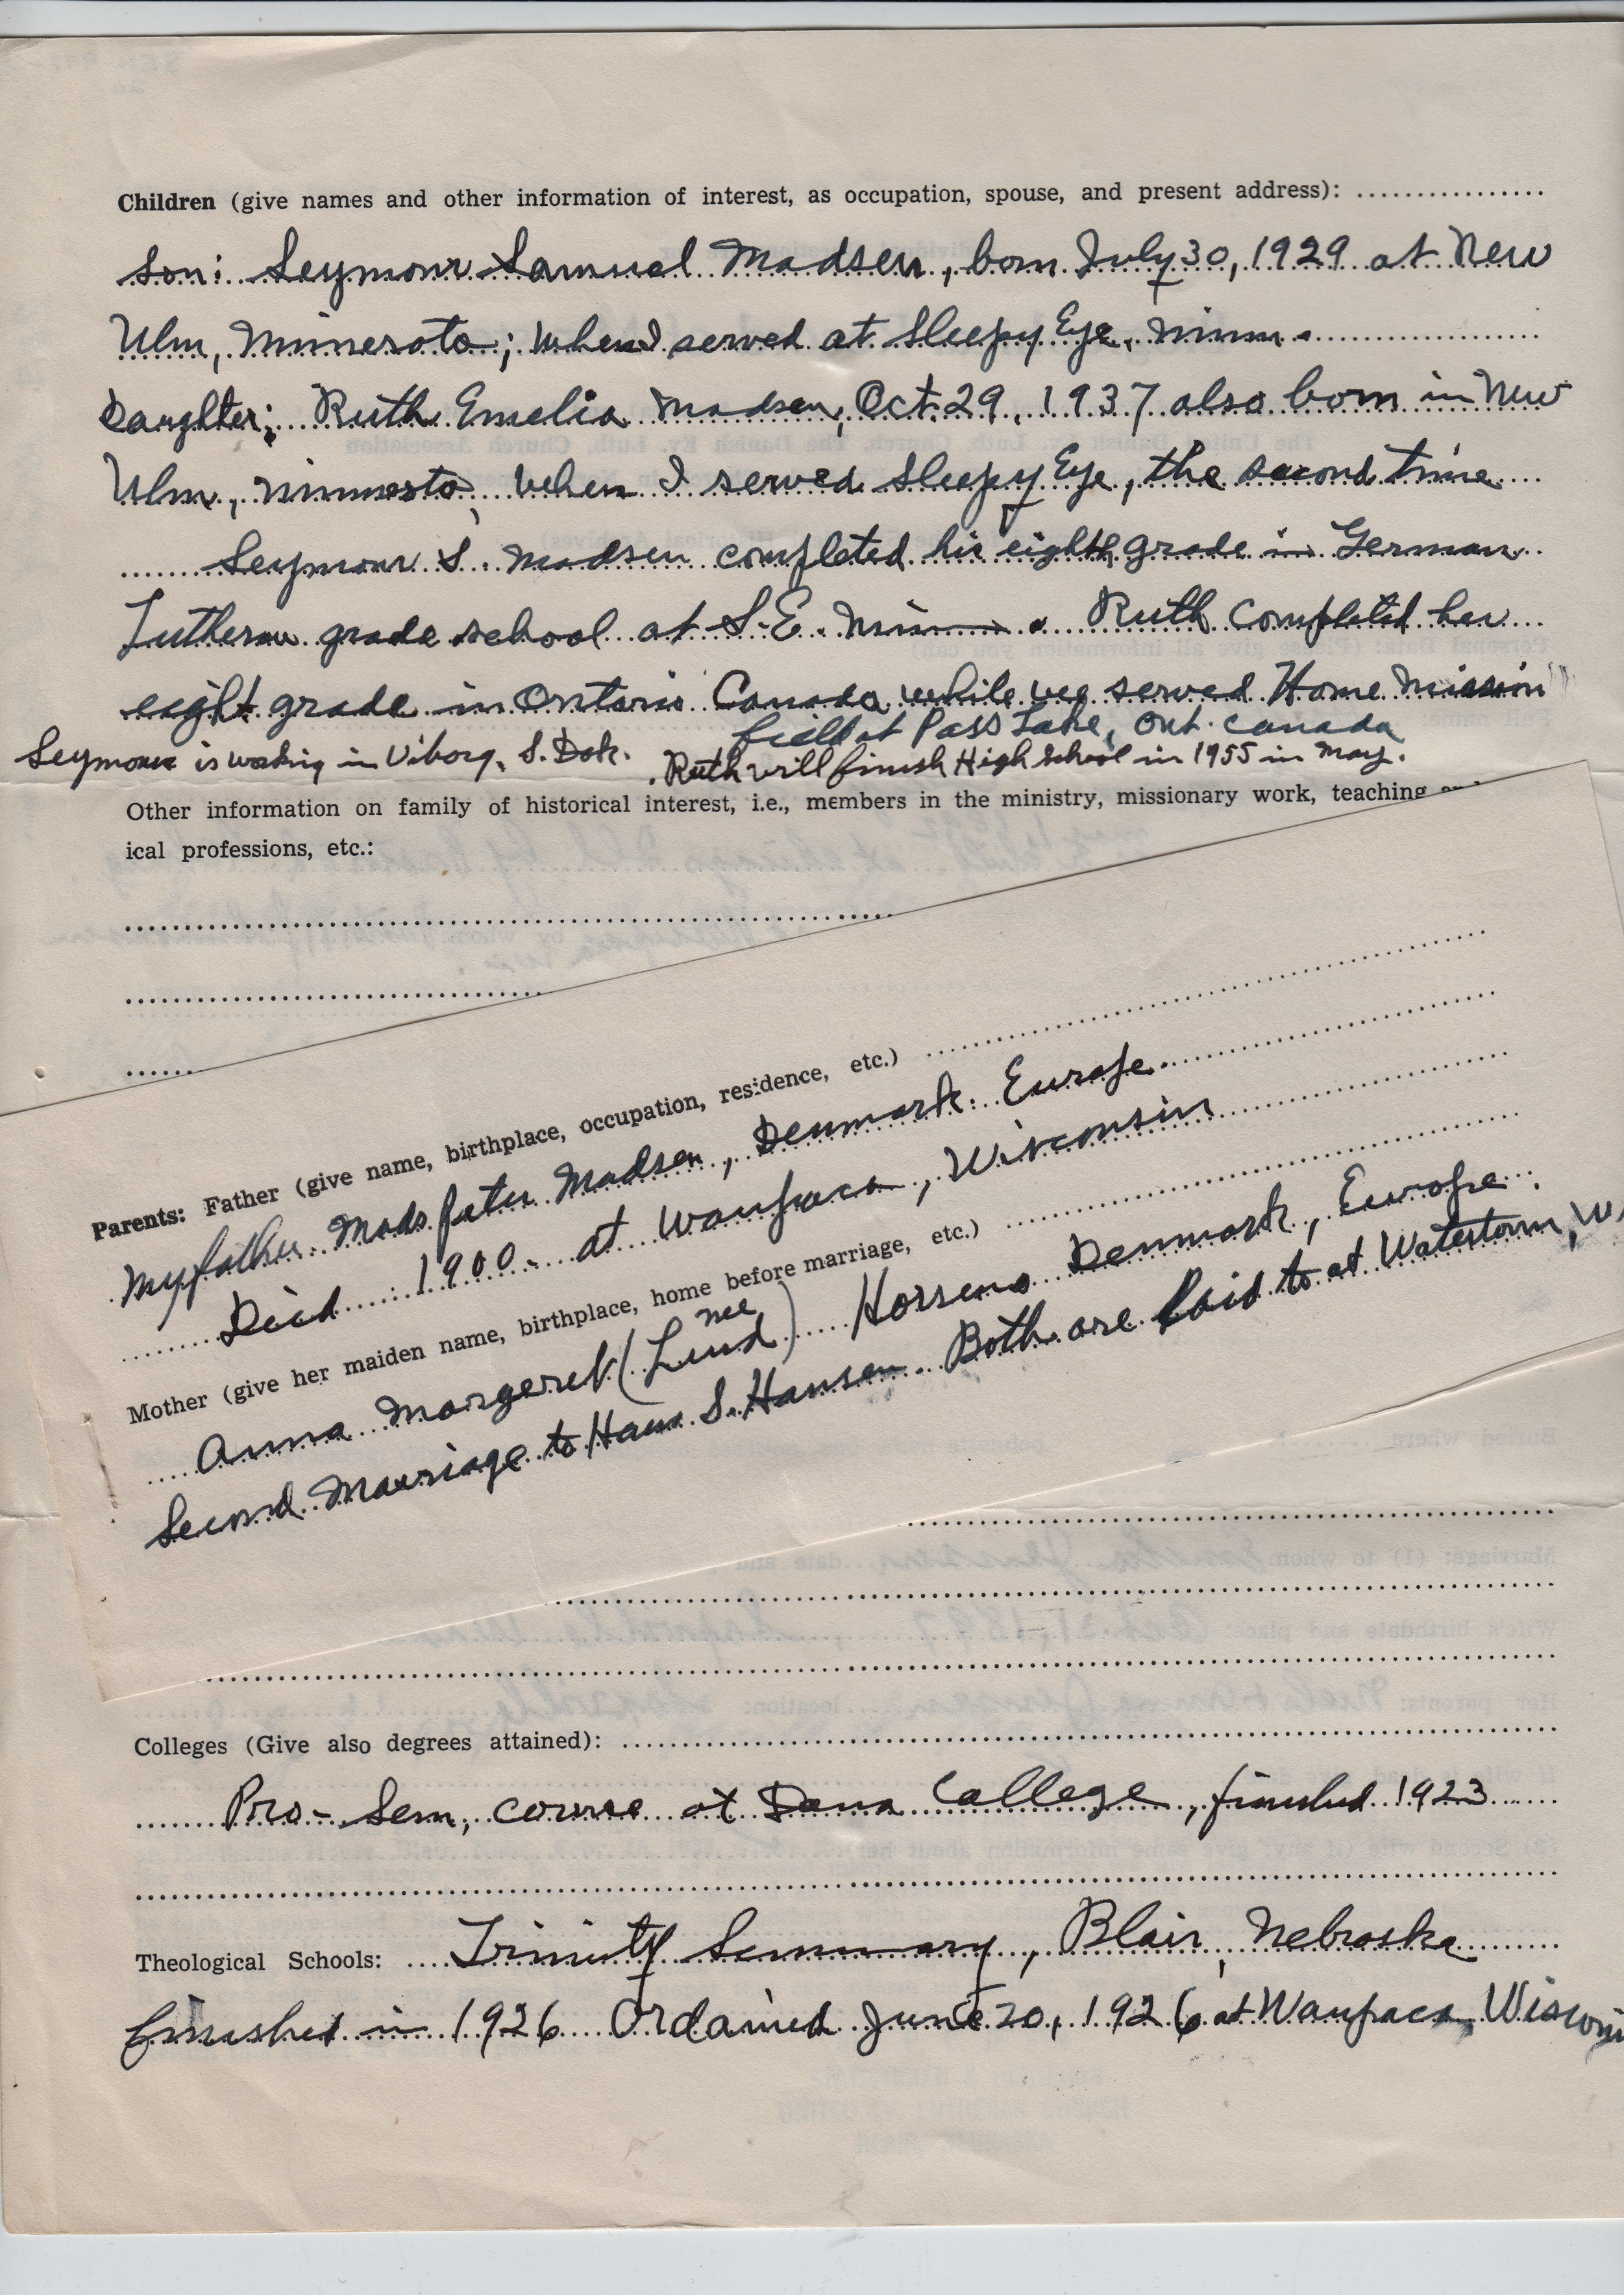 Children (give names and other information of interest, as occupation, spouse, and present address):
Son: Seymour Samuel Madsen, born July 30, 1929 at New
Ulm, Minnesota; when I served at Sleepy Eye, Minn.
Daughter: Ruth Emelia Madsen, Oct. 29, 1937 also born in New
Ulm, Minnesota, when I served Sleepy Eye, the second time
Seymour S. Madsen completed his eighth grade in German
Lutheran grade school at S.E. Minn. Ruth completed her
eight grade in Ontario Canada while we served Home Mission
field at Pass Lake, Ont. Canada
Seymour is working in Viborg, S. Dak. Ruth will finish High School in 1955 in May.
Other information on family of historical interest, i.e., members in the ministry, missionary work, teaching
ical professions, etc.:
Parents: Father (give name, birthplace, occupation, residence, etc.)
My father Mads Peter Madsen, Denmark. Europe
Died 1900 - at Waupaca, Wisconsin
Mother (give her maiden name, birthplace, home before marriage, etc.)
nee
Anna Margeret (Lund) Horsens Denmark, Europe.
Second Marriage to Hans S. Hansen. Both are laid to at Watertown, W
Buried where
Marriage: (1) to whom date and
Wife's birthdate and place:
Her parents: location:
Colleges (Give also degrees attained):
Pro-Sem, course at Dana College, finished 1923
Theological Schools: Trinity Seminary, Blair, Nebraska
finished in 1926 Ordained June 20, 1926 at Waupaca, Wisconsin